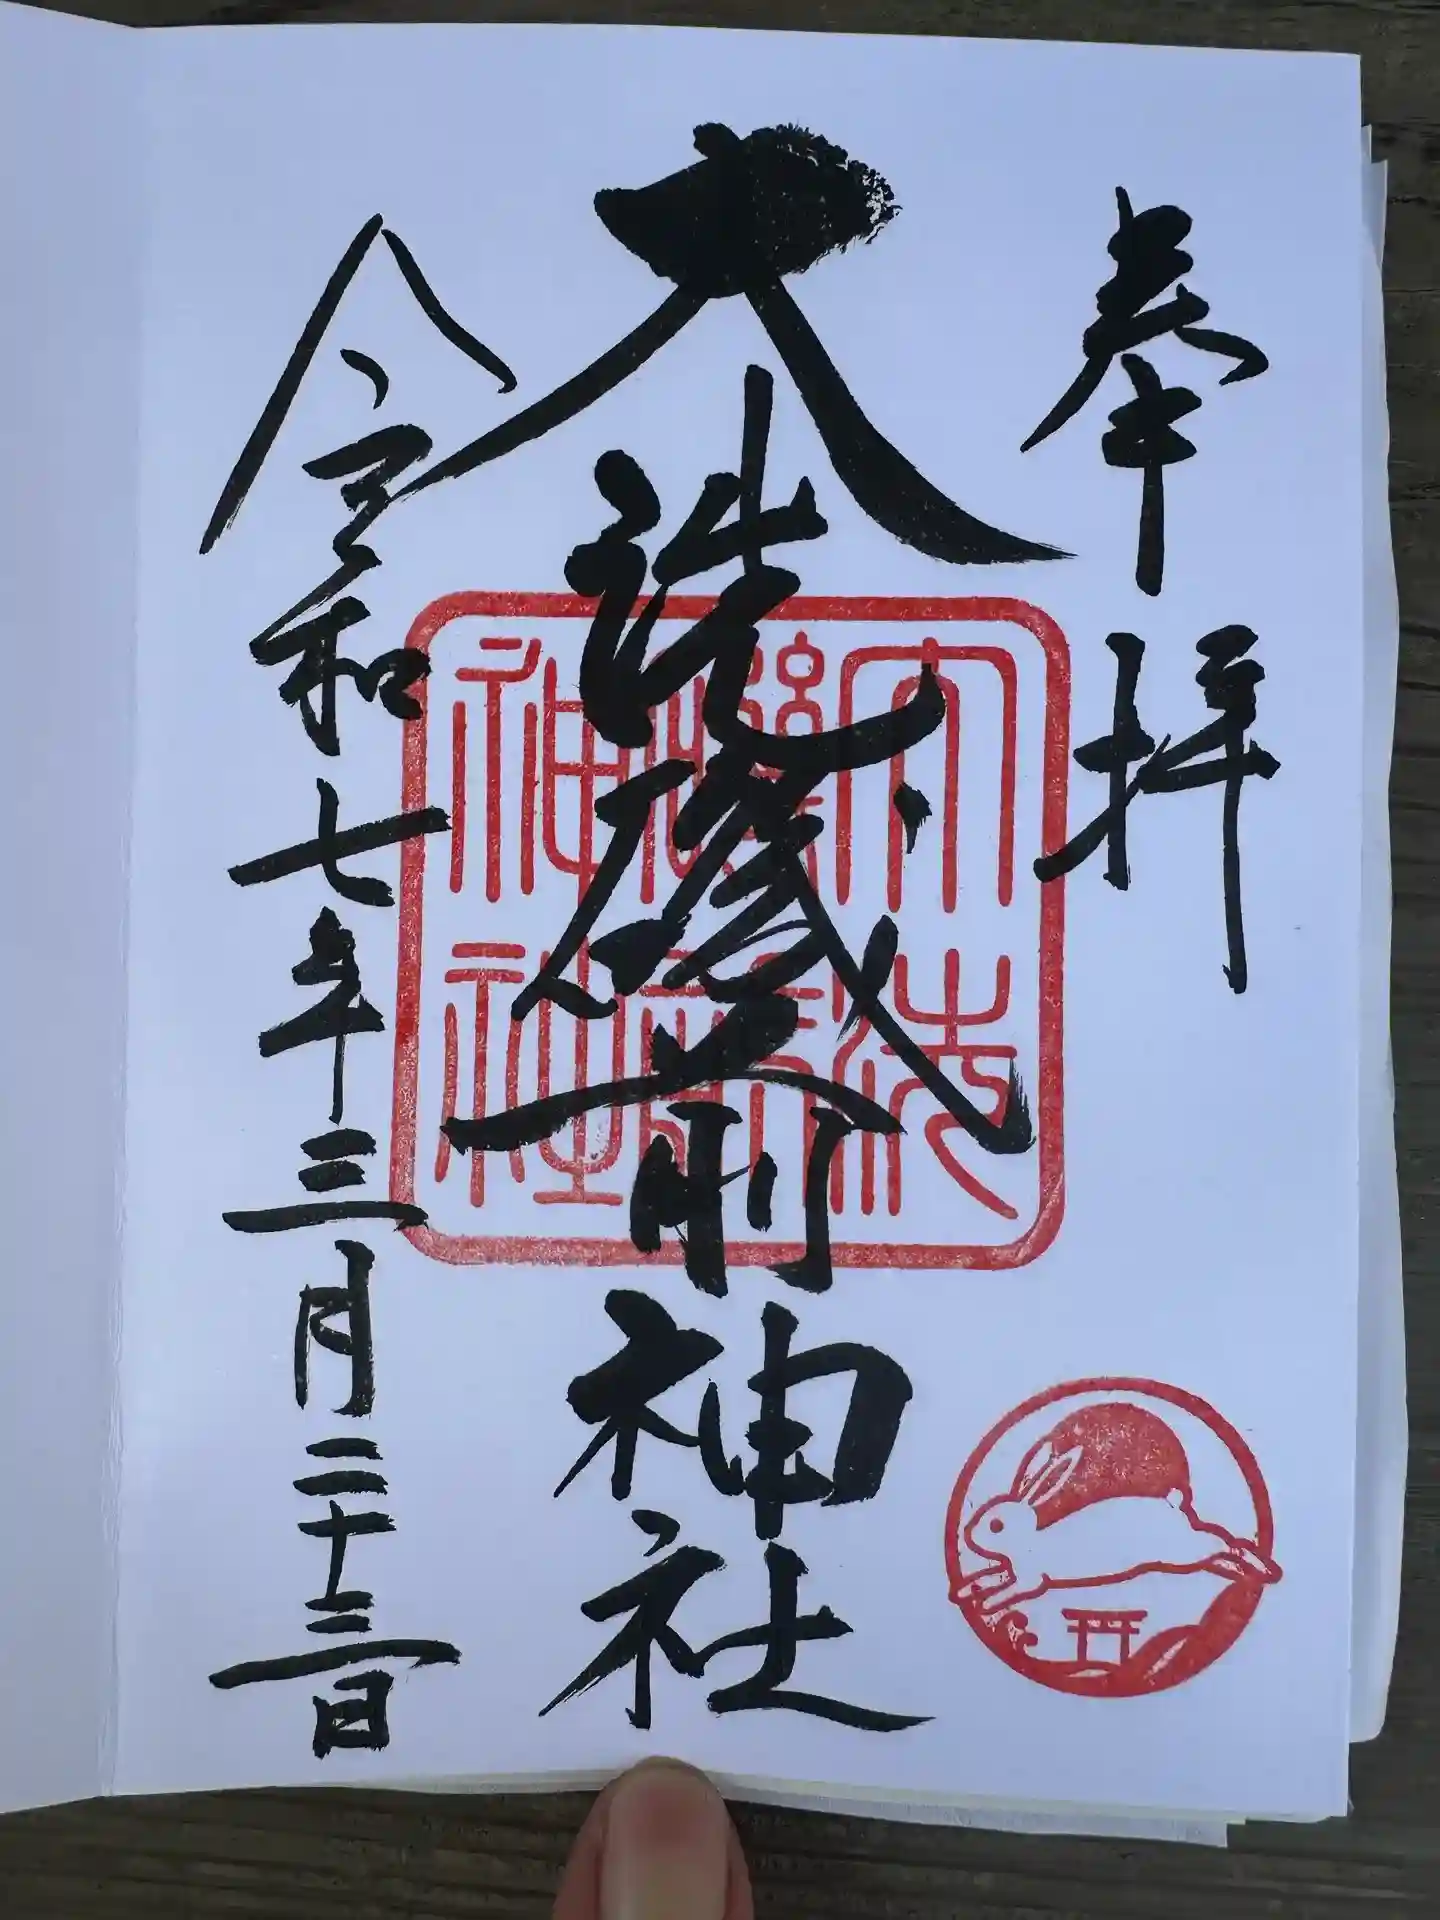 奉拝
大洗磯前神社
令和七年三月二十三日
大洗磯前神社